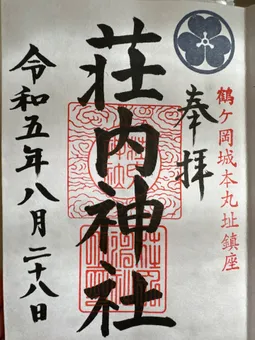 鶴ヶ岡城本丸址鎮座
奉拝
荘内神社
令和五年八月二十八日